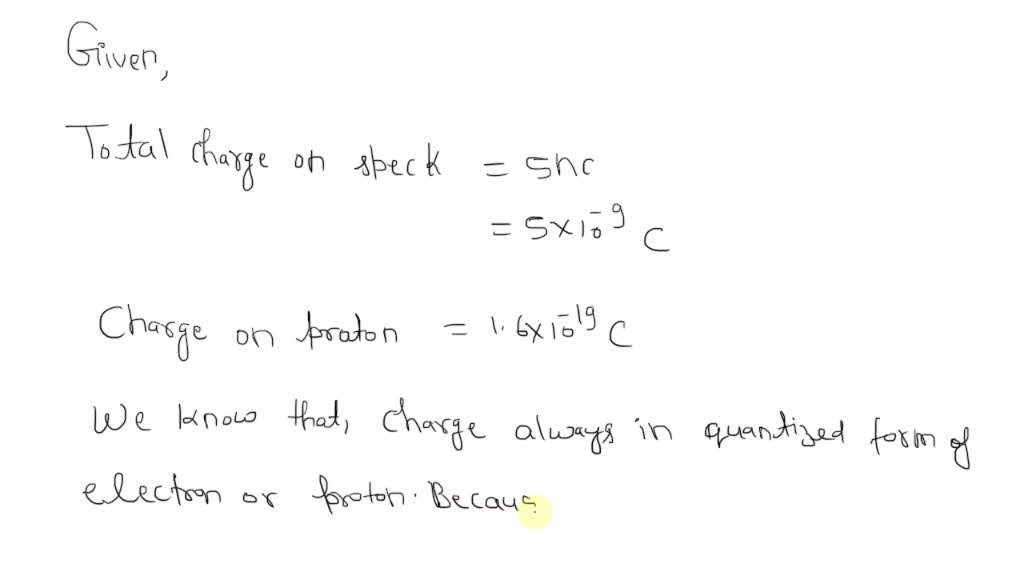 Given,
Total charge on speck = 5nc
= 5×10⁻⁹ C
Charge on proton = 1.6×10⁻¹⁹ C
We know that, charge always in quantized form of
electron or proton. Becaus